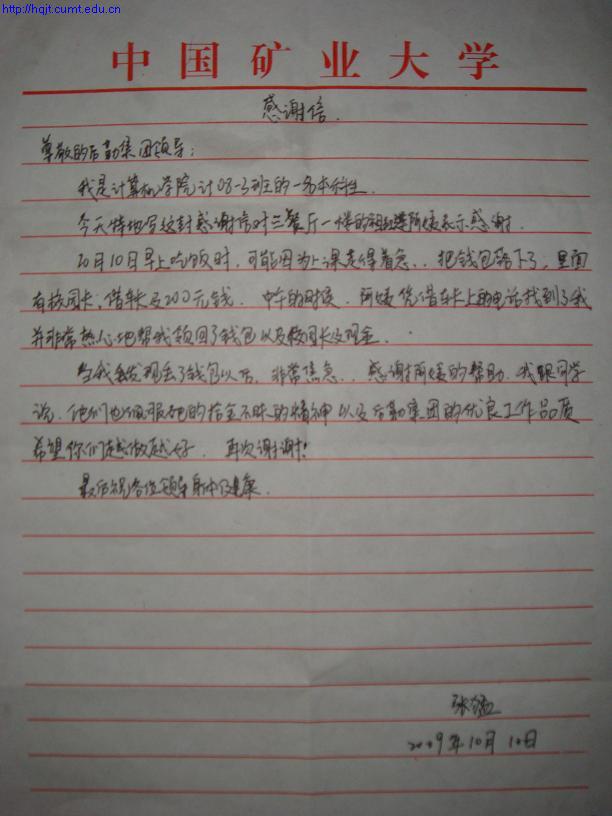 http://hqjt.cumt.edu.cn
中国矿业大学
感谢信.
尊敬的后勤集团领导:
我是计算机学院计08-3班的一名本科生.
今天特地写这封感谢信对三餐厅一楼的阿姨表示感谢.
10月10日早上吃饭时,可能因为上课走得着急..把钱包落下了,里面
有校园卡、借车卡及200元钱.中午的时候,阿姨凭借车卡上的电话找到了我
并非常热心地帮我领回了钱包以及校园卡及现金.
当我发现丢了钱包以后,非常焦急..感谢阿姨的帮助.我跟同学
说,他们也佩服她的拾金不昧的精神以及后勤集团的优良工作品质
希望你们越做越好.再次谢谢!
最后祝各位领导身体健康.
张
2009年10月10日